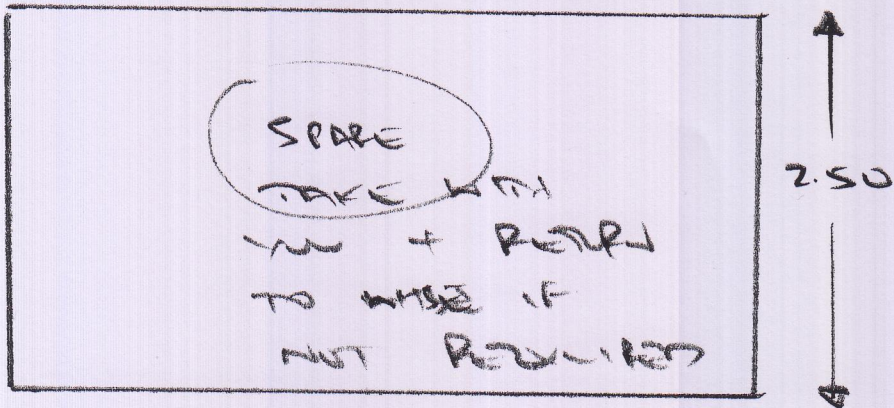 SPARE
TAKE WITH
YOU + RETURN
TO WHSE IF
NOT REQUIRED
2.50